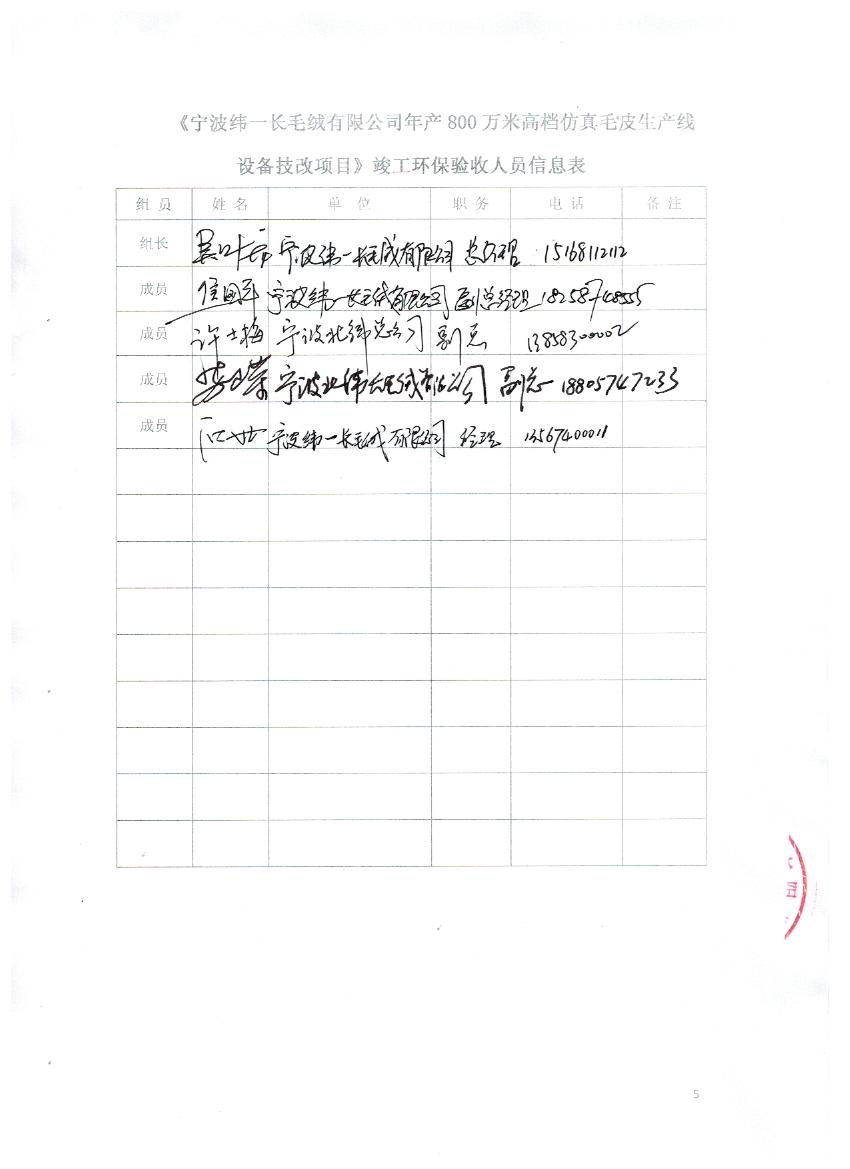 《宁波纬一长毛绒有限公司年产 800 万米高档仿真毛皮生产线
设备技改项目》竣工环保验收人员信息表
组 员 姓 名 单 位 职 务 电 话 备 注
组长 宁波纬一长毛绒有限公司 总经理 15168112112
成员 宁波纬一长毛绒有限公司 副总经理 18258748555
成员 许士梅 宁波北纬总公司 副总 13858300002
成员 宁波北纬长毛绒有限公司 副总 18805747233
成员 宁波纬一长毛绒有限公司 经理 13567400011
5